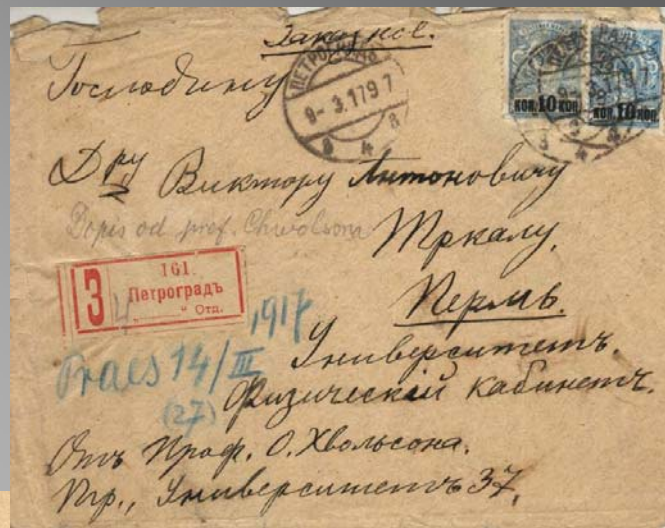 Заказное.
Господину
ПЕТРОГРАДЪ
9-3.17 9 7
коп. 10 коп.
коп. 10 коп.
Дру Виктору Антоновичу
Dopis od prof. Chwolsona
Тркалу,
161.
З Петроградъ
4 " Отд.
Пермь.
1917
Praes 14/III
(27)
Университетъ.
Физическій кабинетъ.
Отъ Проф. О. Хвольсона.
Птр., Университетъ 37,